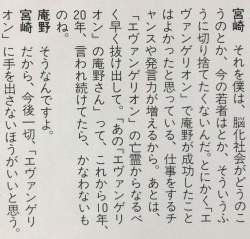 宮崎　それを僕は、脳化社会がどういうこ
うのとか、今の若者はとか、そういうふ
うに切り捨てたくないんだ。とにかく「エ
ヴァンゲリオン」で庵野が成功したこと
はよかったと思っている、仕事をするチ
ャンスや発言力が増えるから。あとは、
「エヴァンゲリオン」の亡霊からなるべ
く早く抜け出して。「あの『エヴァンゲリ
オン』の庵野さん」って、これから10年、
20年、言われ続けてたら、かなわないも
のね。
庵野　そうなんですよ。
宮崎　だから、今後一切、「エヴァンゲリ
オン」に手を出さないほうがいいと思う。